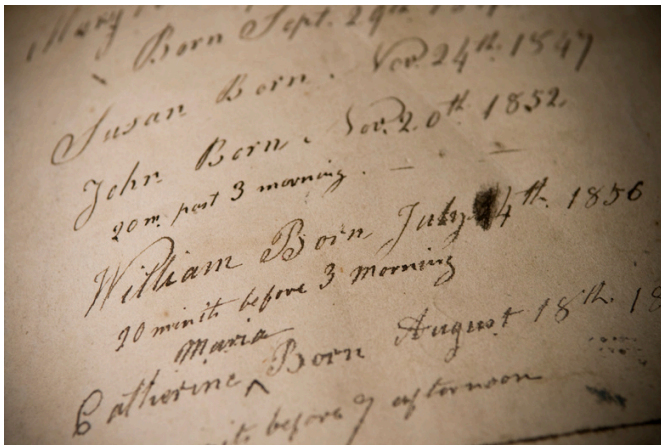 Mary
Born Sept. 29th
Susan Born. Nov. 24th. 1847
John Born. Nov. 20th 1852.
20 m. past 3 morning.
William Born July 4th. 1856
20 minits before 3 morning
Maria
Catherine ^ Born August 18th. 18
before 7 afternoon